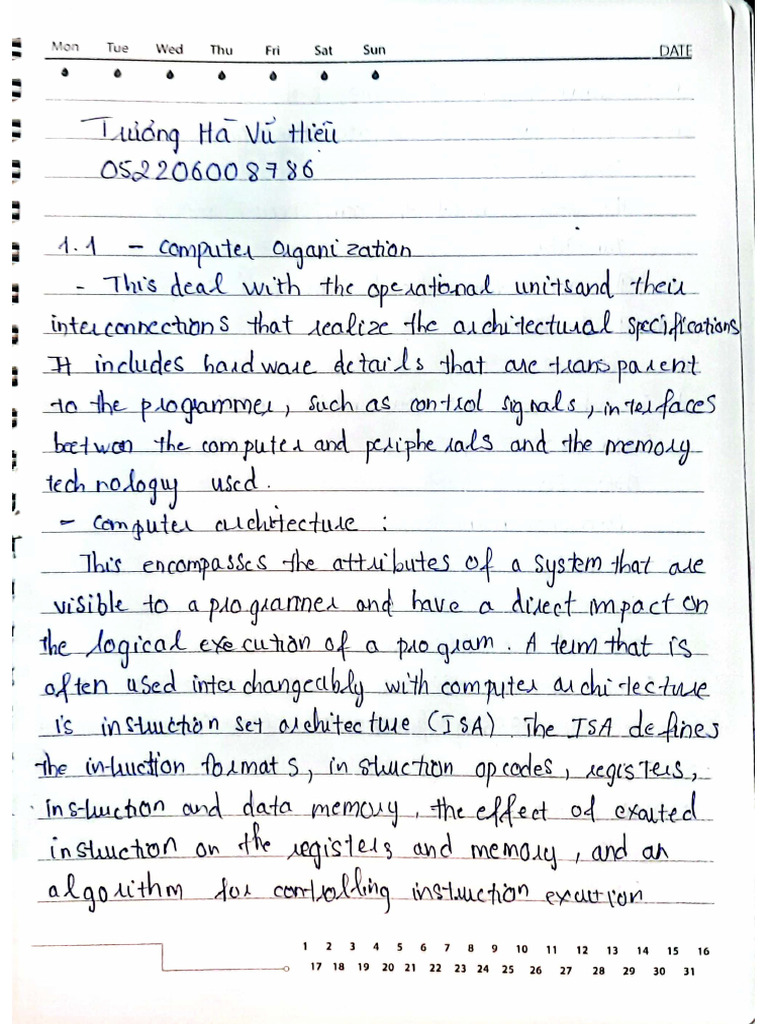 Mon Tue Wed Thu Fri Sat Sun DATE
Trương Hà Vũ Hiệu
052206008786
1.1 - Computer Organization
- This deal with the operational units and their
interconnections that realize the architectural specifications
It includes hardware details that are transparent
to the programmer, such as control signals, interfaces
beetwen the computer and peripherals and the memory
technologuy used.
- Computer architecture :
This encompasses the attributes of a system that are
visible to a programer and have a direct impact on
the logical execution of a program. A term that is
often used interchangeably with computer architecture
is instruction set architecture (ISA). The ISA defines
the intruction formats, instruction opcodes, registers,
instruction and data memory, the effect of exauted
instruction on the registers and memory, and an
algorithm for controlling instruction exaution
1 2 3 4 5 6 7 8 9 10 11 12 13 14 15 16
17 18 19 20 21 22 23 24 25 26 27 28 29 30 31